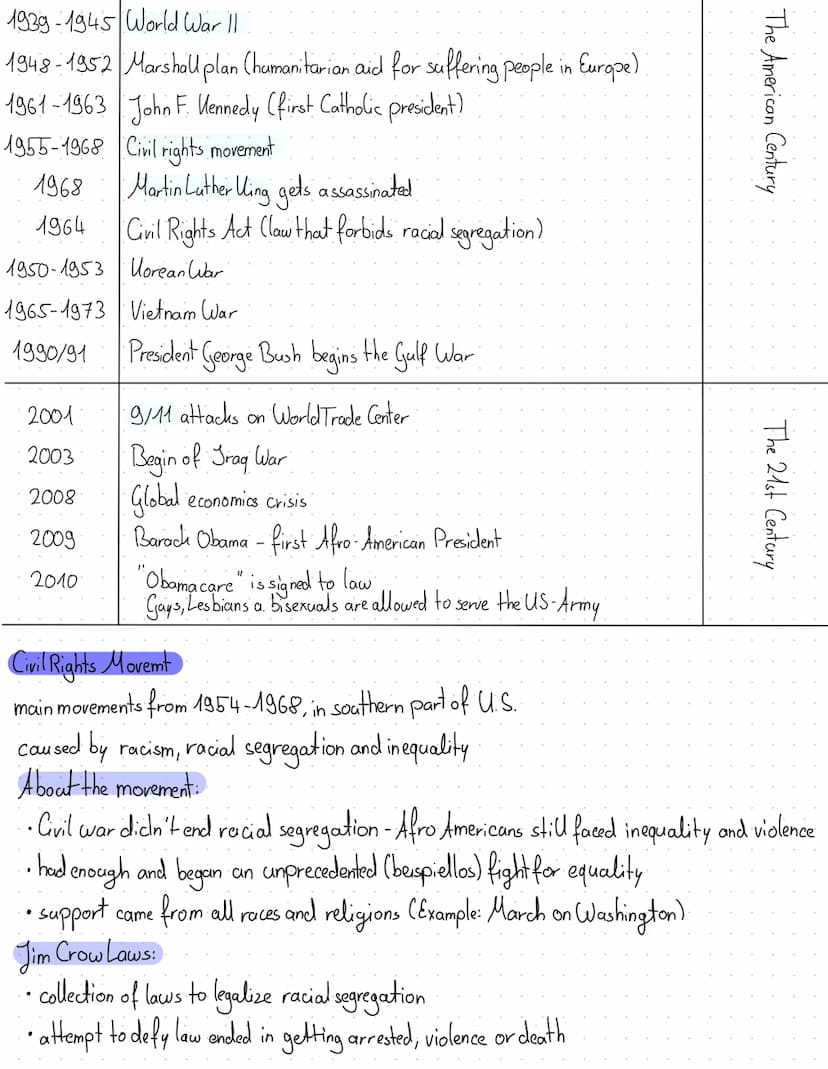 1939-1945 World War II
1948-1952 Marshall plan (humanitarian aid for suffering people in Europe)
1961-1963 John F. Kennedy (first Catholic president)
1955-1968 Civil rights movement
1968 Martin Luther King gets assassinated
1964 Civil Rights Act (law that forbids racial segregation)
1950-1953 Korean War
1965-1973 Vietnam War
1990/91 President George Bush begins the Gulf War
The American Century
2001 9/11 attacks on World Trade Center
2003 Begin of Iraq War
2008 Global economics crisis
2009 Barack Obama - first Afro-American President
2010 "Obamacare" is signed to law
Gays, Lesbians a. bisexuals are allowed to serve the US-Army
The 21st Century
Civil Rights Movemt
main movements from 1954-1968, in southern part of U.S.
caused by racism, racial segregation and inequality
About the movement:
· Civil war didn't end racial segregation - Afro Americans still faced inequality and violence
· had enough and began an unprecedented (beispiellos) fight for equality
· support came from all races and religions (Example: March on Washington)
Jim Crow Laws:
· collection of laws to legalize racial segregation
· attempt to defy law ended in getting arrested, violence or death